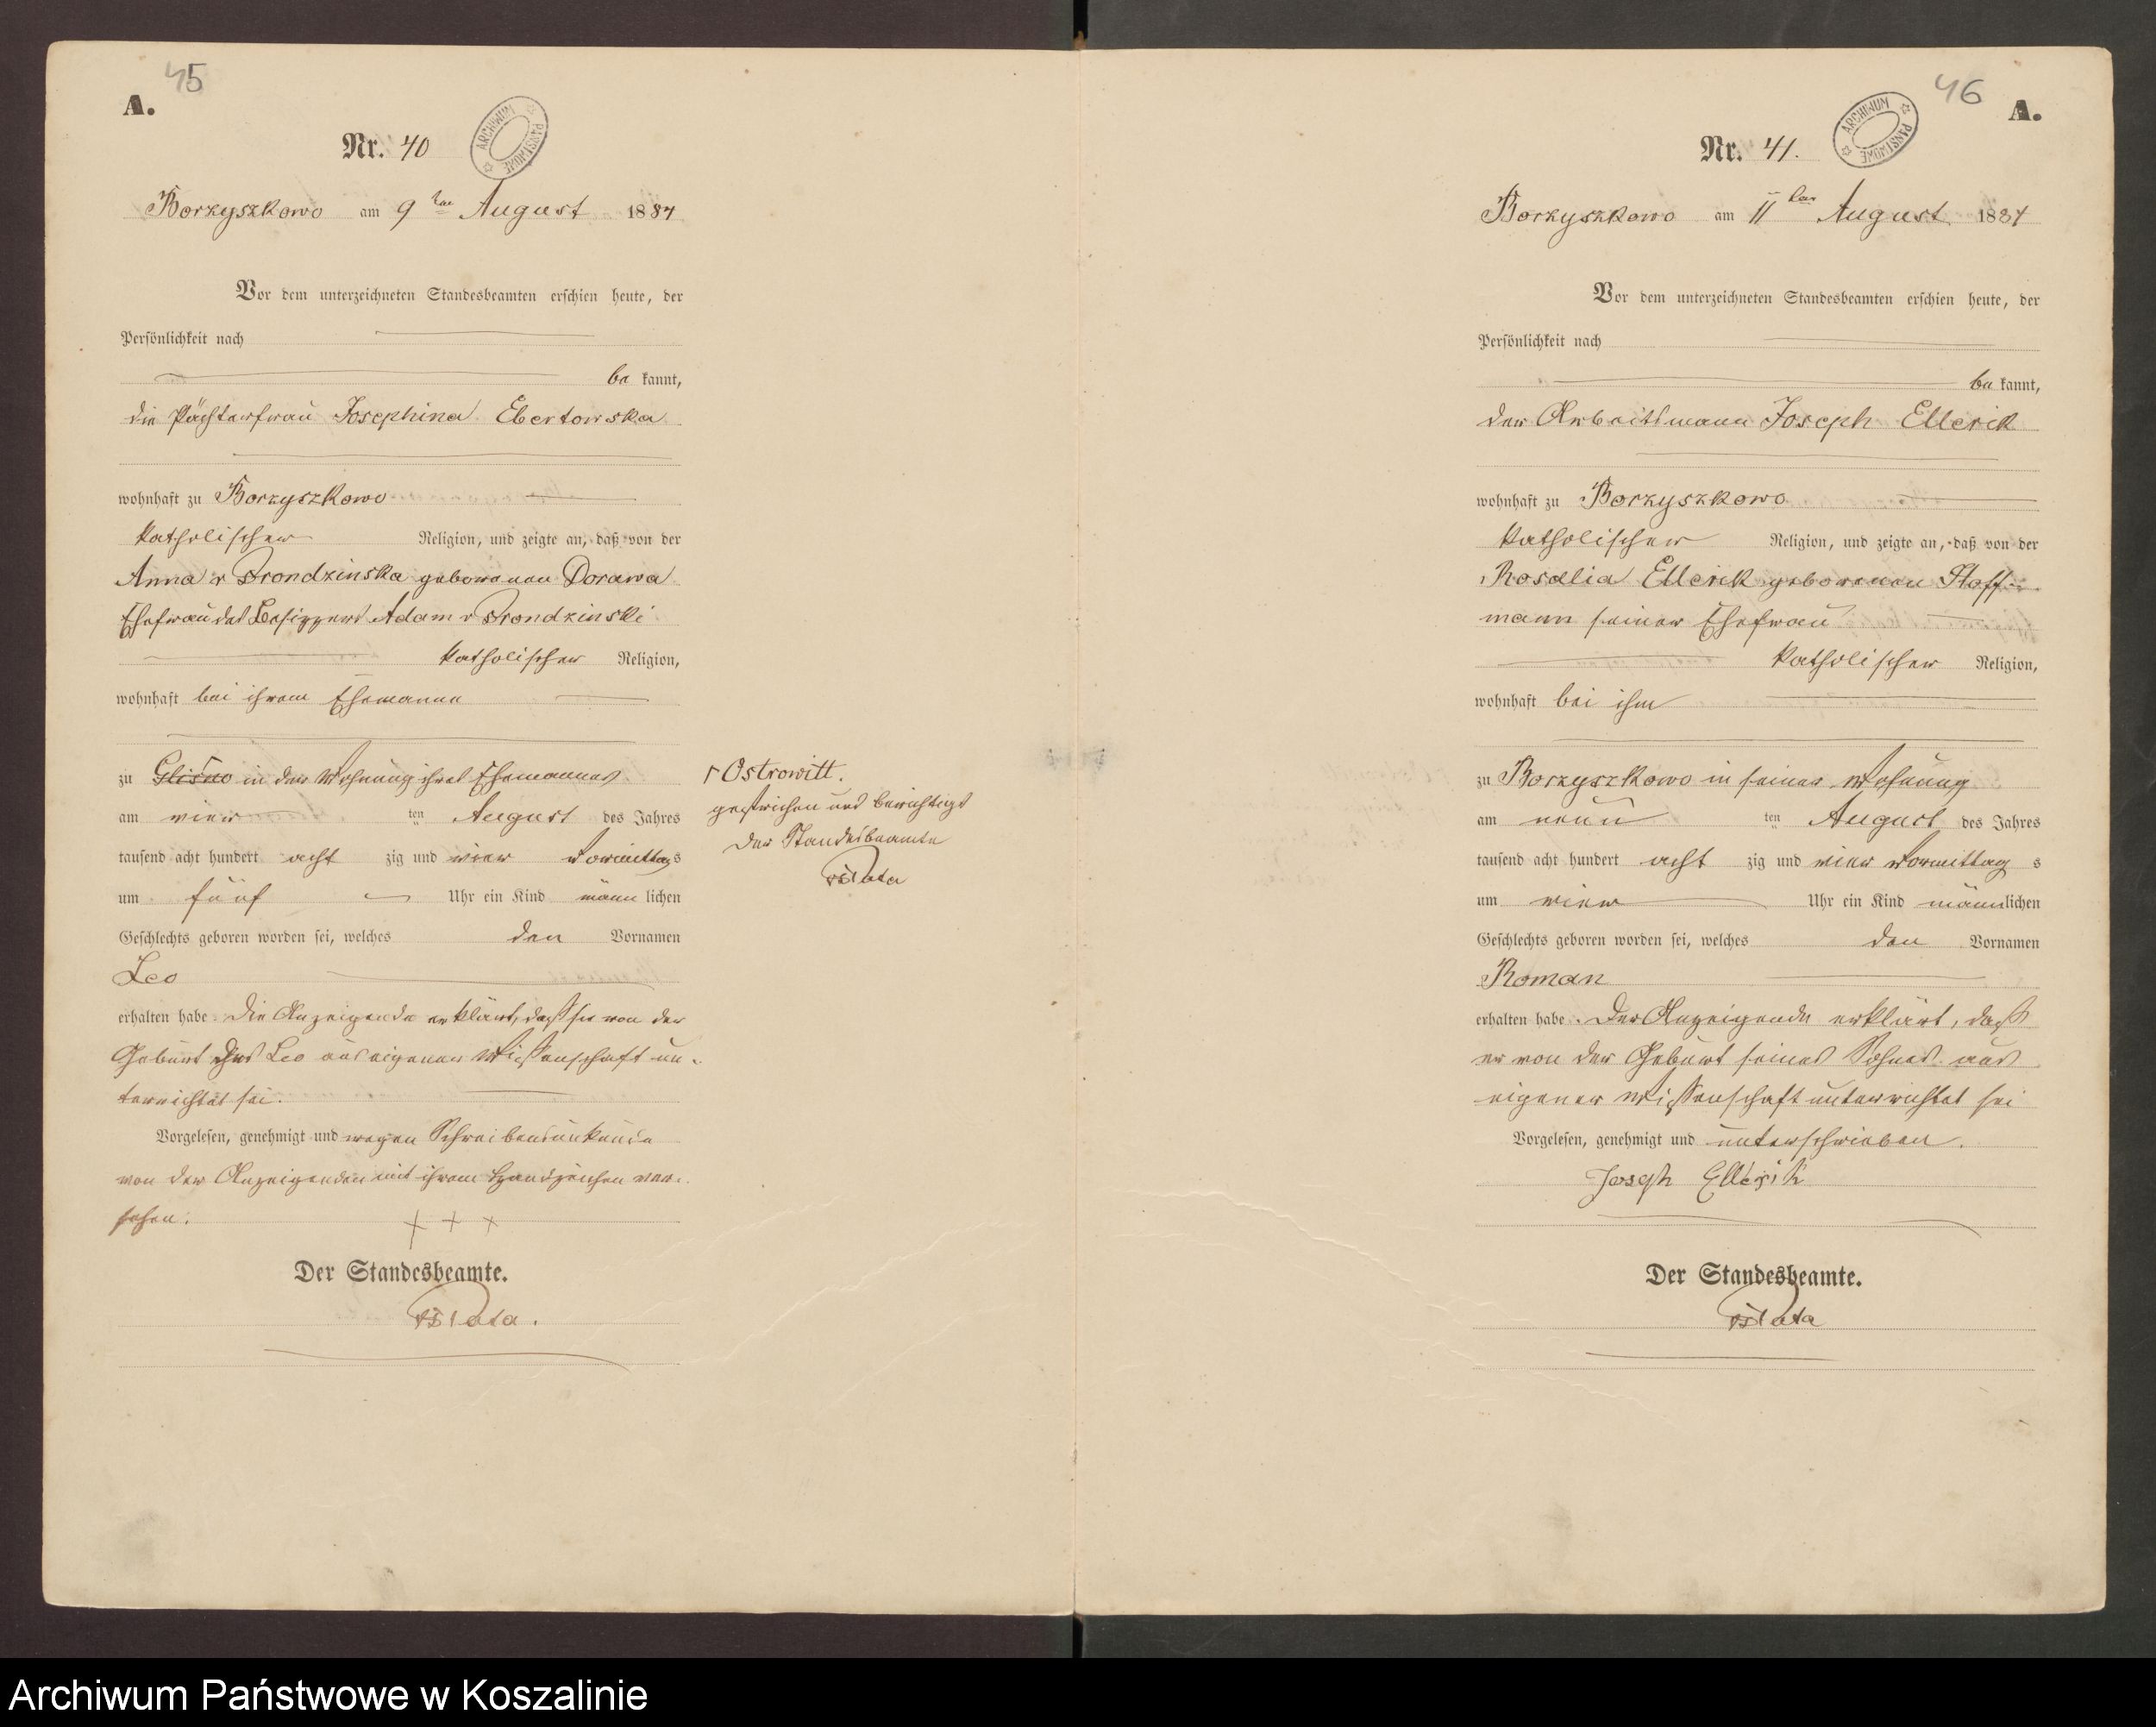 45
A.
Nr. 40
ARCHIWUM PAŃSTWOWE
Borzyszkowo am 9ten August 1884
Vor dem unterzeichneten Standesbeamten erschien heute, der
Persönlichkeit nach
be kannt,
die Pächterfrau Josephina Ebertowska
wohnhaft zu Borzyszkowo
katholischer Religion, und zeigte an, daß von der
Anna v Prondzinska geborenen Dorawa
Ehefrau des Besitzers Adam v Prondzinski
katholischer Religion,
wohnhaft bei ihrem Ehemanne
zu Glisno in der Wohnung ihres Ehemannes
am vier ten August des Jahres
tausend acht hundert acht zig und vier Vormittags
um fünf Uhr ein Kind männ lichen
Geschlechts geboren worden sei, welches den Vornamen
Leo
erhalten habe. Die Anzeigende erklärt, daß sie von der
Geburt des Leo aus eigener Wissenschaft un-
terrichtet sei.
Vorgelesen, genehmigt und wegen Schreibensunkunde
von der Anzeigenden mit ihrem Handzeichen ver-
sehen.
+ + +
Der Standesbeamte.
Plata.
Ostrowitt.
gestrichen und berichtigt
Der Standesbeamte
Plata
46
A.
Nr. 41.
ARCHIWUM PAŃSTWOWE
Borzyszkowo am 11ten August 1884
Vor dem unterzeichneten Standesbeamten erschien heute, der
Persönlichkeit nach
be kannt,
der Arbeitsmann Joseph Ellerik
wohnhaft zu Borzyszkowo
katholischer Religion, und zeigte an, daß von der
Rosalia Ellerik geborenen Hoff-
mann seiner Ehefrau
katholischer Religion,
wohnhaft bei ihm
zu Borzyszkowo in seiner Wohnung
am neun ten August des Jahres
tausend acht hundert acht zig und vier Vormittag s
um vier Uhr ein Kind männlichen
Geschlechts geboren worden sei, welches den Vornamen
Roman
erhalten habe. Der Anzeigende erklärt, daß
er von der Geburt seines Sohnes aus
eigener Wissenschaft unterrichtet sei
Vorgelesen, genehmigt und unterschrieben.
Joseph Ellerik
Der Standesbeamte.
Plata
Archiwum Państwowe w Koszalinie